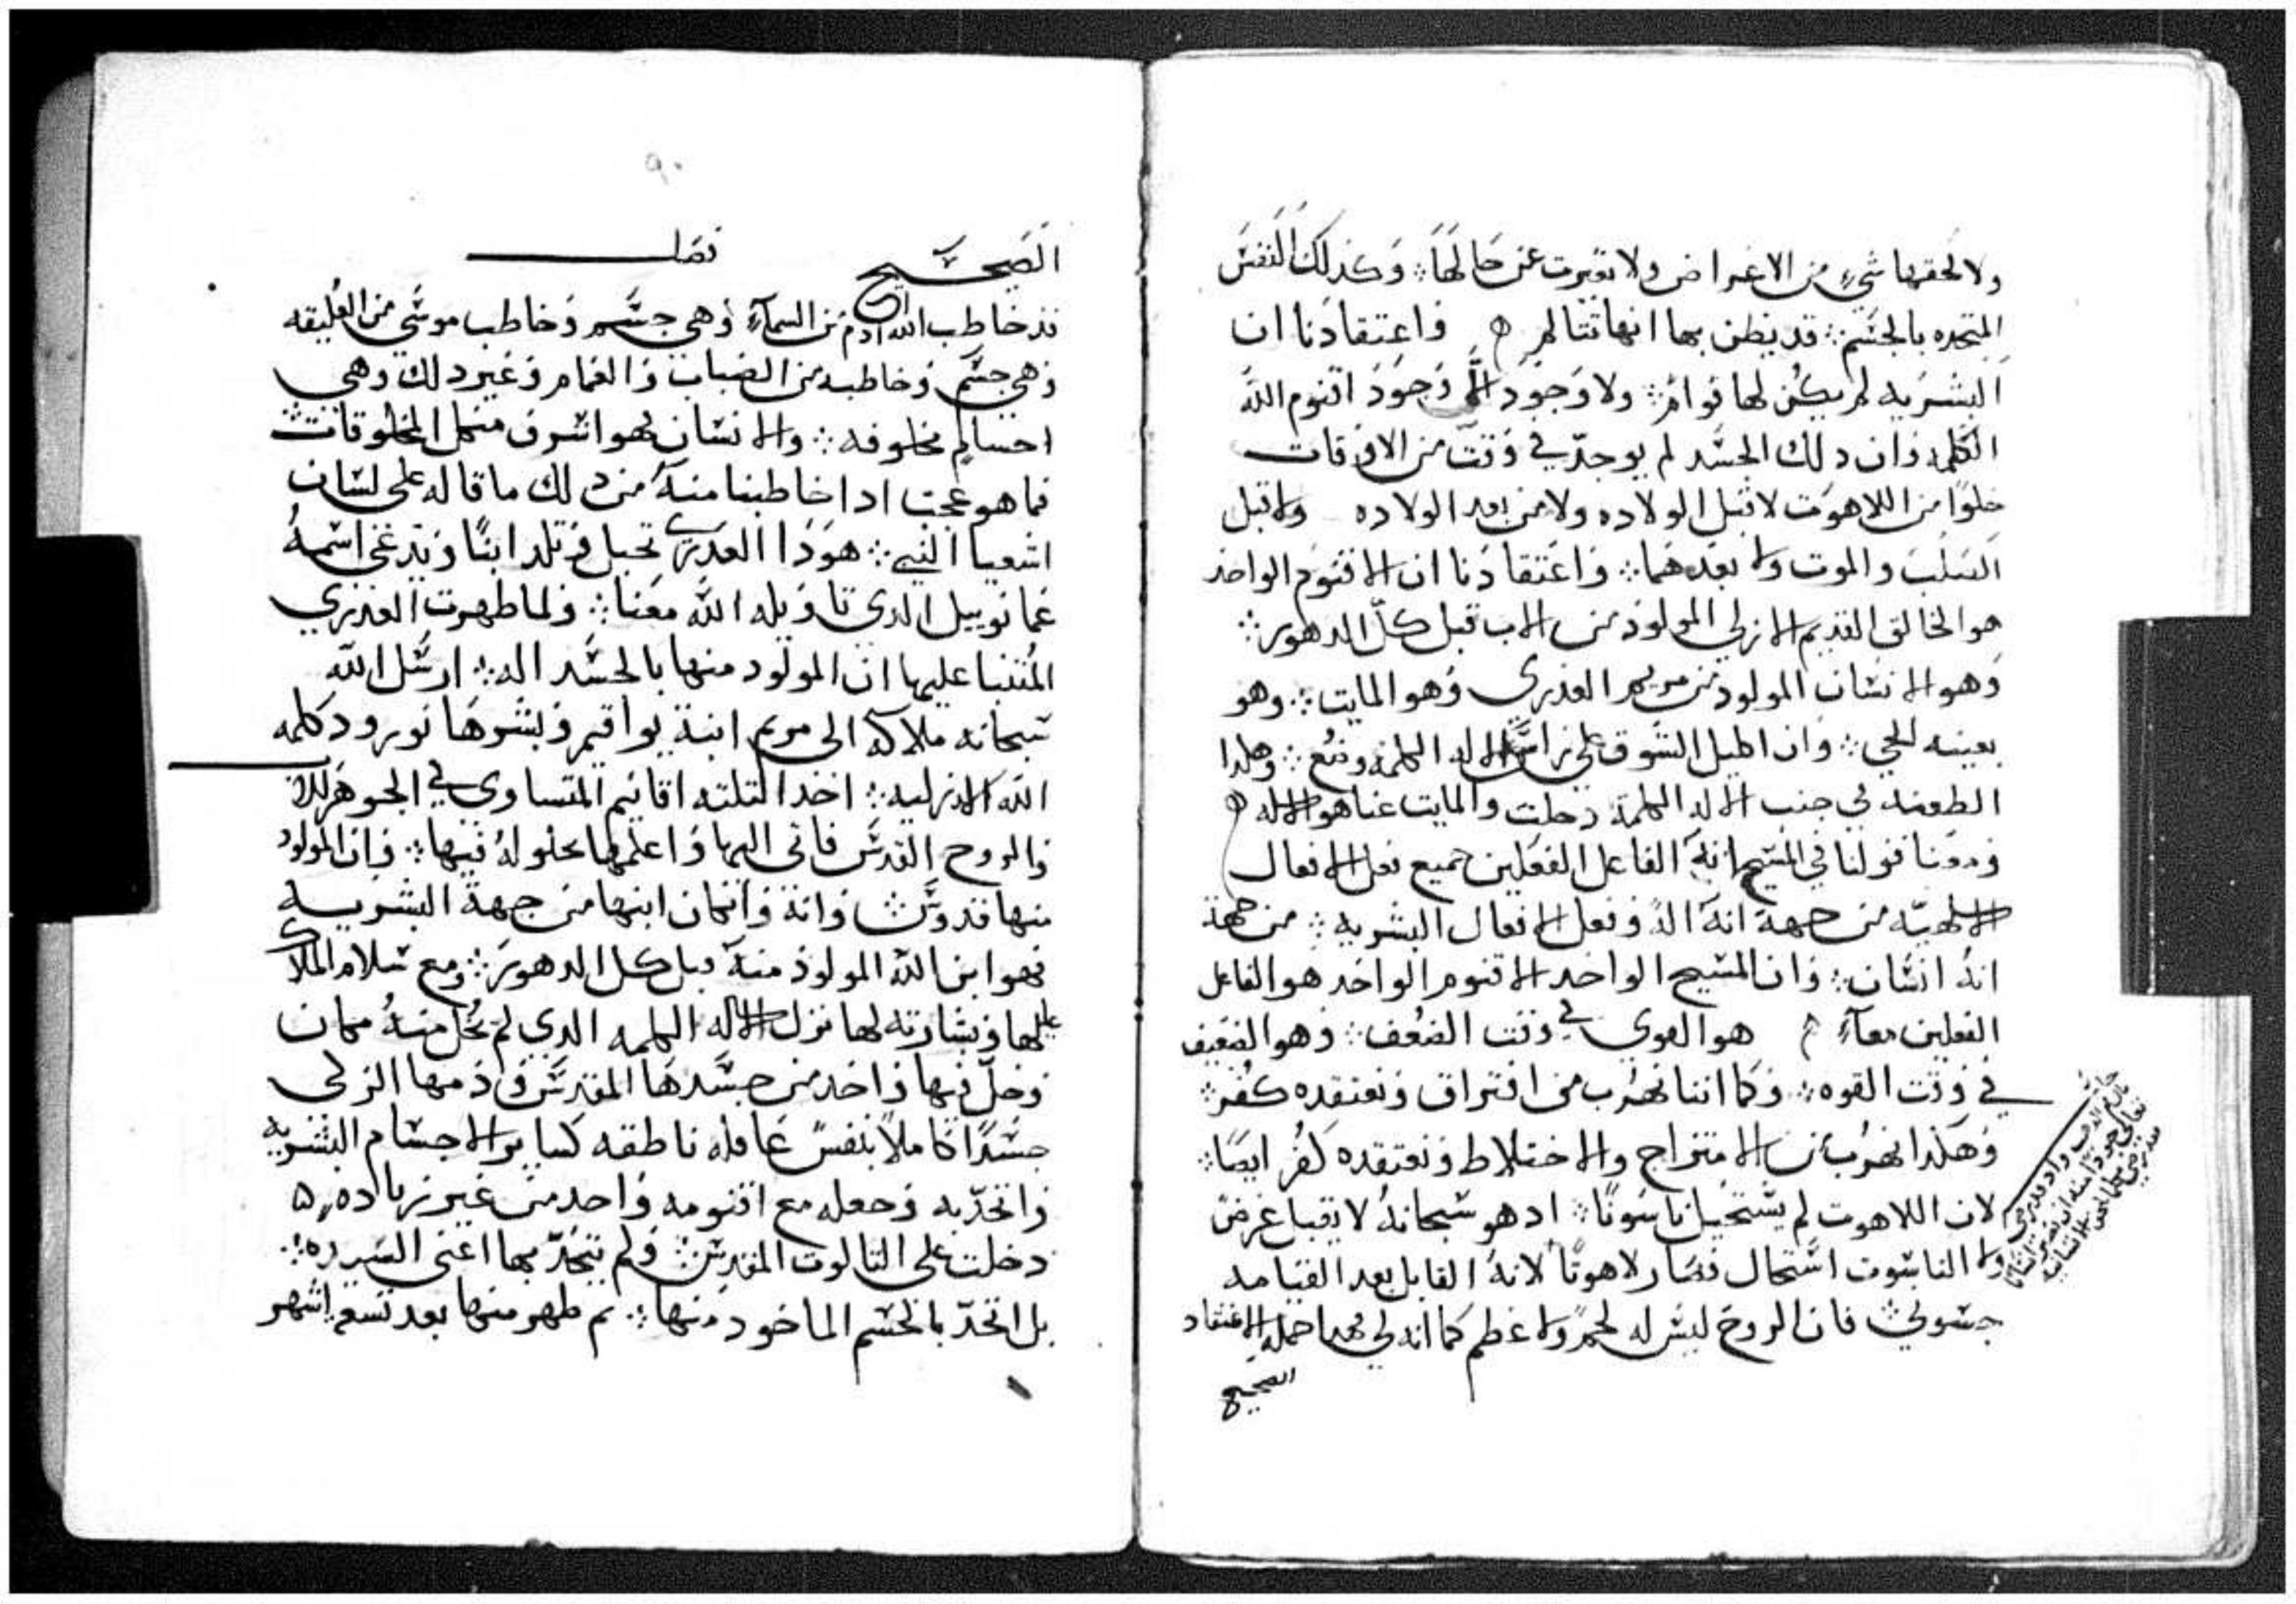 ولا لحقها شيء من الاعراض ولا تغيرت عن حالها ؞ وكذلك النفس
المتحده بالجسم ؞ قد يظن بها انها تتالم واعتقادنا ان
البشريه لم يكن لها قوام ؞ ولا وجود الا وجود اقنوم الله
الكلمه وان دلك الجسد لم يوجد في وقت من الاوقات
خلوا من اللاهوت لا قبل الولاده ولا من بعد الولاده ولا قبل
الصلب والموت ولا بعدهما ؞ واعتقادنا ان الاقنوم الواحد
هو الخالق القديم الازلي المولود من الاب قبل كل الدهور ؞
وهو الانسان المولود من مريم العذري وهو المايت ؞ وهو
بعينه الحي ؞ وان اكليل الشوق على راس الاله الكلمه وضع ؞ وهكدا
الطعنه في جنب الاله الكلمة دخلت والمايت عنا هو الاله
قولنا في المسيح انه الفاعل الفعلين جميع فعل الافعال
الالهيه من جهة انه اله وفعل الافعال البشريه ؞ من جهة
انه انسان ؞ وان المسيح الواحد الاقنوم الواحد هو الفاعل
الفعلين معآ هو القوي في وقت الضعف ؞ وهو الضعيف
في وقت القوه ؞ وكما اننا نهرب من افتراق ونعتقده كفر ؞
وهكدا نهرب من الامتزاج والاختلاط ونعتقده كفر ايضا ؞
لان اللاهوت لم يستحيل ناسوتا ؞ اد هو سبحانه لا يقبل عرض
ولا الناسوت استحال فصار لاهوتا لانه القايل بعد القيامه
جسوني فان الروح ليس له لحم ولا عظم كما انه لي فهدا جملة الاعتقاد
الصحيح
٩٠
الصحيح فصل
قد خاطب الله ادم من السمآء وهي جسم وخاطب موسي من العليقه
وهي جسم وخاطبه من الضباب والغمام وغير دلك وهي
اجسام مخلوقه ؞ والانسان فهو اشرف من كل المخلوقات
فما هو عجب ادا خاطبنا منه من دلك ما قاله على لسان
اشعيا النبي ؞ هودا العدري تحبل وتلد ابنا ويدعى اسمه
عمانوييل الدي تاويله الله معنا ؞ ولما ظهرت العذري
المتنبا عليها ان المولود منها بالجسد اله ؞ ارسل الله
سبحانه ملاكه الى مريم ابنة يواقيم وبشرها بورود كلمه
الله الازليه ؞ احد التلته اقانيم المتساوي في الجوهر للاب
والروح القدس فاتى اليها واعلمها بحلوله فيها ؞ وان المولود
منها قدوس وانه وان كان ابنها من جهة البشريه
فهو ابن الله المولود منه قبل كل الدهور ؞ ومع سلام الملاك
عليها وبشارته لها نزل الاله الكلمه الدي لم يخل منه مكان
وحل فيها واخد من جسدها المقدس ودمها الزكي
جسدا كاملا بنفس عاقله ناطقه كساير الاجسام البشريه
واتحد به وجعله مع اقنومه واحد من غير زياده
دخلت على التالوت المقدس ؞ ولم يتحد بها اعني السيده ؞
بل اتحد بالجسم الماخود منها ؞ تم ظهر منها بعد تسعة اشهر